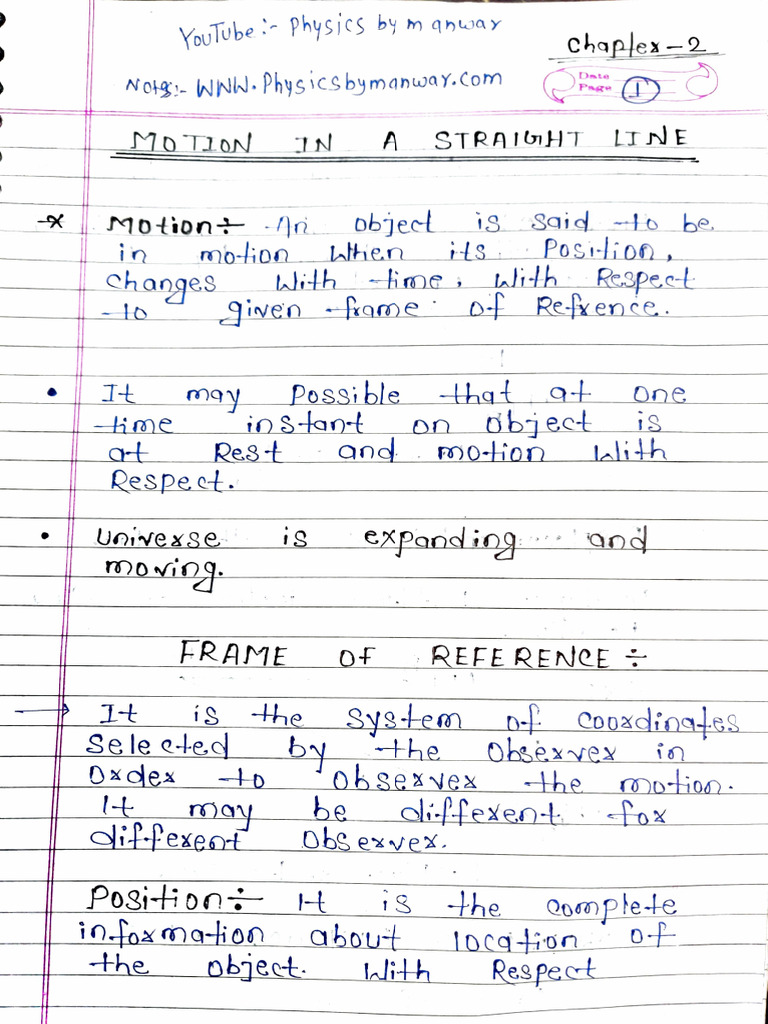 YouTube:- Physics by manwar
Chapter-2
Notes:- WWW.Physicsbymanwar.com
Date
Page 1
MOTION IN A STRAIGHT LINE
Motion÷ An object is said to be
in motion When its Position,
changes With time, With Respect
to given frame of Refrence.
• It may Possible that at one
time instant on object is
at Rest and motion With
Respect.
• Universe is expanding and
moving.
FRAME OF REFERENCE÷
→ It is the system of coordinates
Selected by the Observer in
Order to observer the motion.
It may be different for
different Observer.
Position÷ It is the complete
information about location of
the object. With Respect